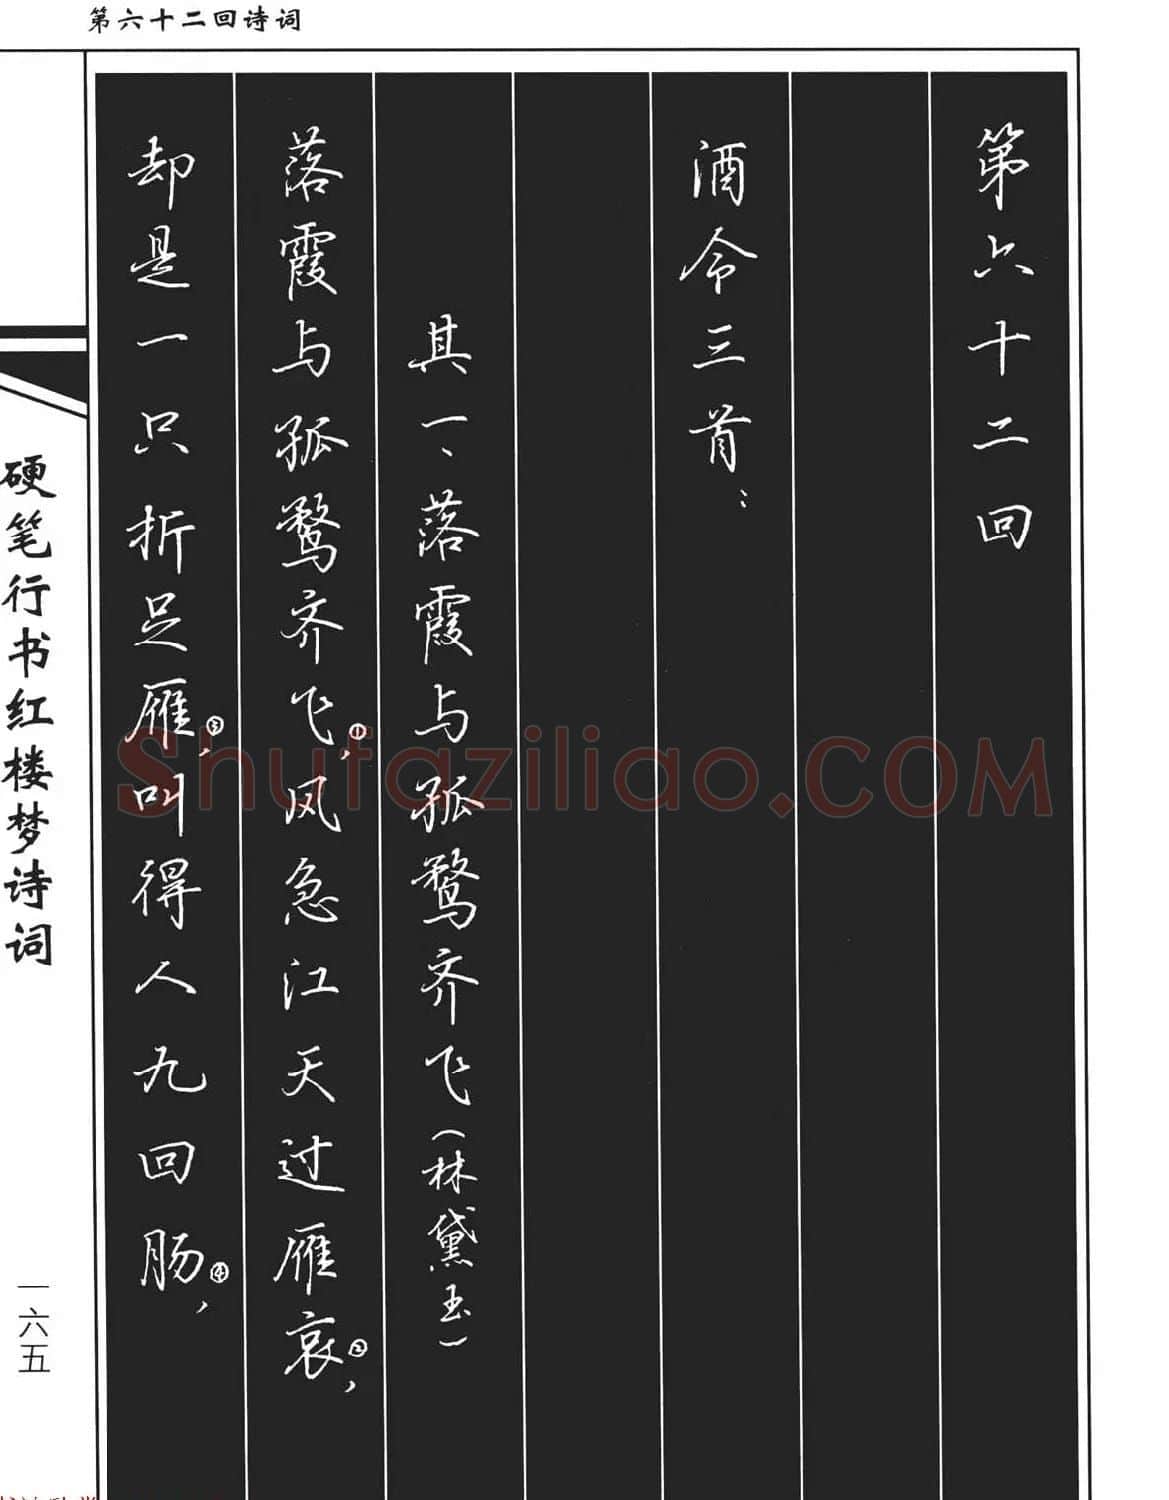 第六十二回诗词
第六十二回
酒令三首：
其一、落霞与孤鹜齐飞（林黛玉）
落霞与孤鹜齐飞①，风急江天过雁哀②，
却是一只折足雁③，叫得人九回肠④，
硬笔行书红楼梦诗词
一六五
Shufaziliao.COM